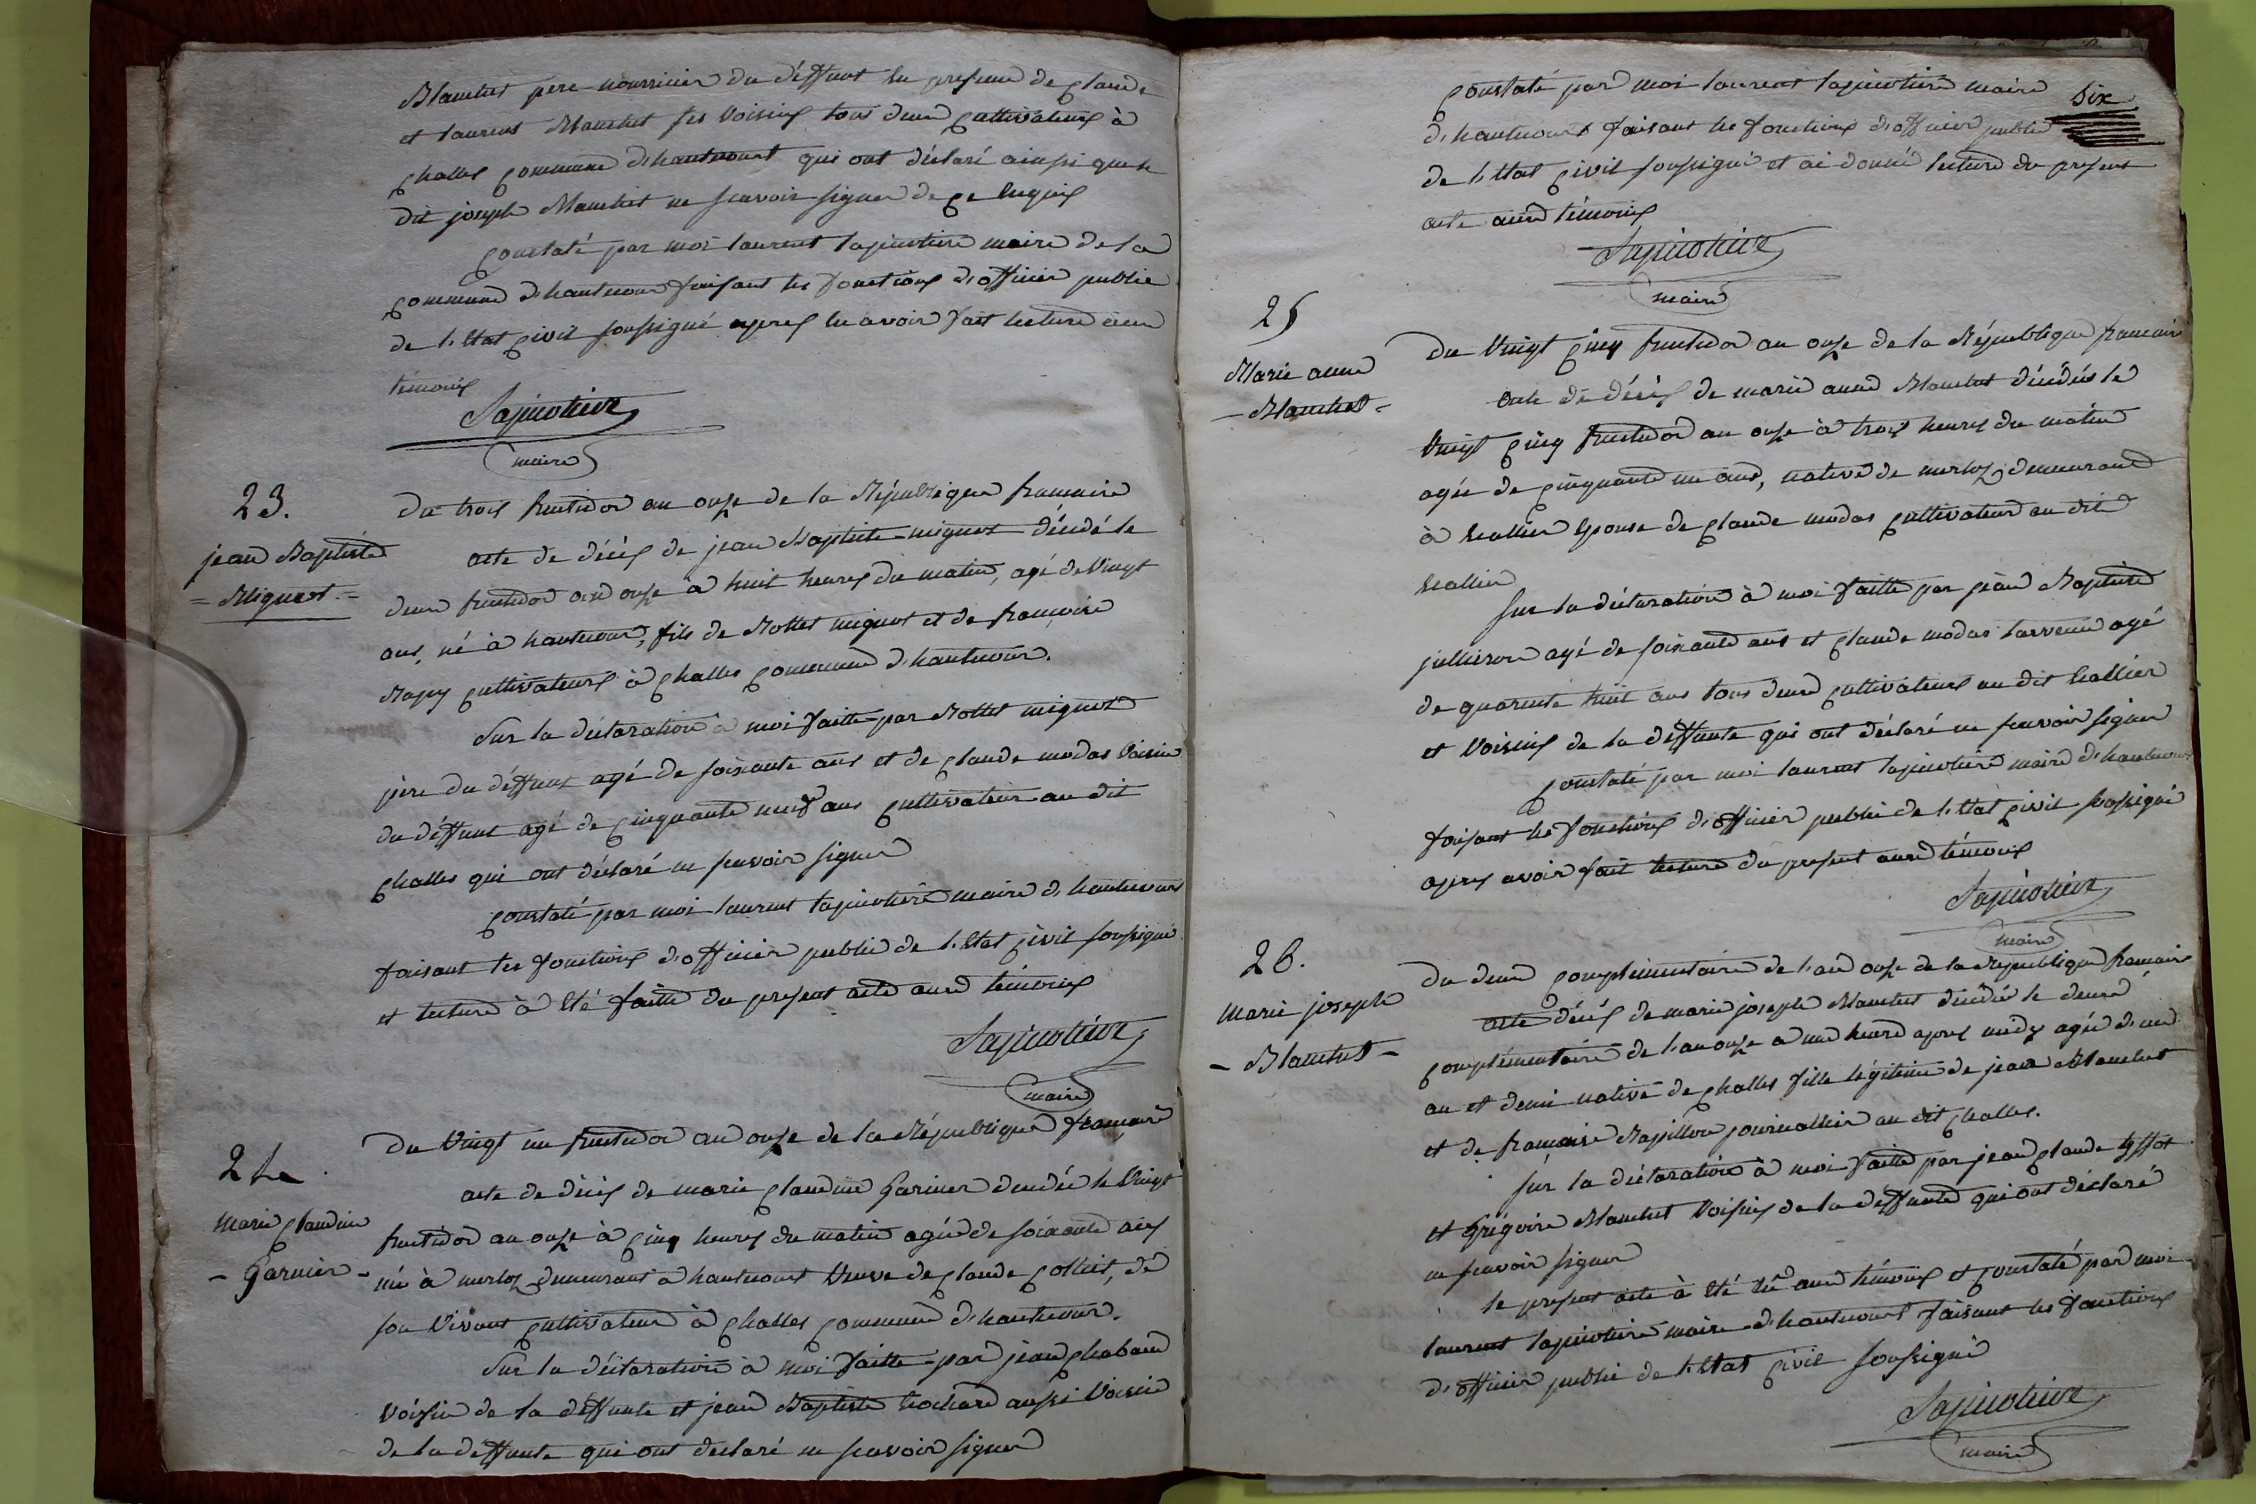 Blanchet pere nourricier du déffunt en presence de claude
et laurent Blanchet ses voisins tous deux cultivateurs à
challes commune d'hautecourt qui ont déclaré ainsi que le
dit joseph Blanchet ne scavoir signer de ce enquis
constaté par moi laurent lapierre maire de la
commune d'hautecour faisant les fonctions d'officier public
de l'Etat civil soussigné apres en avoir fait lecture aux
témoins
maire
23.
jean Baptiste
= Miguet. =
du trois fructidor an onze de la République francaise
acte de décès de jean Baptiste miguet décédé le
deux fructidor an onze à huit heures du matin, agé de vingt
ans, né à hautecour, fils de miguet et de francoise
cultivateurs à challes commune d'hautecour.
Sur la déclaration à moi faitte par miguet
père du déffunt agé de soixante ans et de claude modas voisin
du déffunt agé de cinquante neuf ans cultivateur au dit
challes qui ont déclaré ne scavoir signer
constaté par moi laurent maire d'hautecour
faisant les fonctions d'officier public de l'Etat civil soussigné
et lecture à été faitte du present acte aux témoins
maire
24.
marie claudine
- Garnier -
du vingt un fructidor an onze de la République francaise
acte de décès de marie claudine Garnier décédée le vingt
fructidor an onze à cinq heures du matin agée de soixante ans
née à merloz demeurant à hautecourt veuve de claude collet, de
son vivant cultivateur à challes commune d'hautecour.
Sur la déclaration à moi faitte par jean chaband
voisin de la déffunte et jean Baptiste aussi voisin
de la deffunte qui ont declaré ne scavoir signer
Six
constaté par moi laurent maire
d'hautecourt faisant les fonctions d'officier public
de l'Etat civil soussigné et ai donné lecture du present
acte aux témoins
maire
25
Marie anne
- Blanchet =
du vingt cinq fructidor an onze de la République francaise
acte de décès de marie anne Blanchet décédée le
vingt cinq fructidor an onze à trois heures du matin
agée de cinquante un ans, native de merloz demeurant
à épouse de claude modas cultivateur au dit
Sur la déclaration à moi faitte par jean Baptiste
agé de soixante ans et claude modas agé
de quarente huit ans tous deux cultivateurs au dit
et voisins de la déffunte qui ont déclaré ne scavoir signer
constaté par moi laurent maire d'hautecour
faisant les fonctions d'officier public de l'Etat civil soussigné
apres avoir fait lecture du present aux témoins
maire
26.
Marie joseph
- Blanchet -
du deux complémentaire de l'an onze de la République francaise
acte décès de marie joseph Blanchet décédée le deuxe
complémentaire de l'an onze à une heure apres midy agée d'un
an et demi native de challes fille légitime de jean Blanchet
et de francoise journallier au dit challes.
Sur la déclaration à moi faitte par jean claude
et Grégoire Blanchet voisins de la déffunte qui ont déclaré
ne scavoir signer
le present acte à été lû aux témoins et constaté par moi
laurent maire d'hautecourt faisant les fonctions
d'officier public de l'Etat civil soussigné
maire